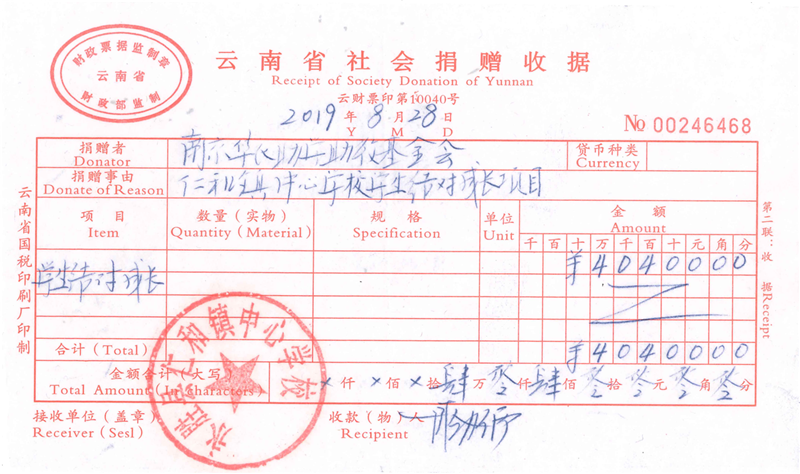 财政票据监制章
云南省
财政部监制
云南省社会捐赠收据
Receipt of Society Donation of Yunnan
云财票印第10040号
2019年8月28日
Y M D
№ 00246468
捐赠者 南京华民助学助教基金会 货币种类
Donator Currency
捐赠事由 仁和镇中心学校学生结对成长项目
Donate of Reason
项目 数量(实物) 规格 单位 金额
Item Quantity (Material) Specification Unit Amount
千百十万千百十元角分
学生结对成长 ¥4040000
合计(Total) ¥4040000
金额合计(大写) ×仟×佰×拾肆万零仟肆佰零拾零元零角零分
Total Amount (In characters)
接收单位(盖章) 收款(物)人
Receiver (Sesl) Recipient
永胜县仁和镇中心学校
云南省国税印刷厂印制
第二联:收据 Receipt